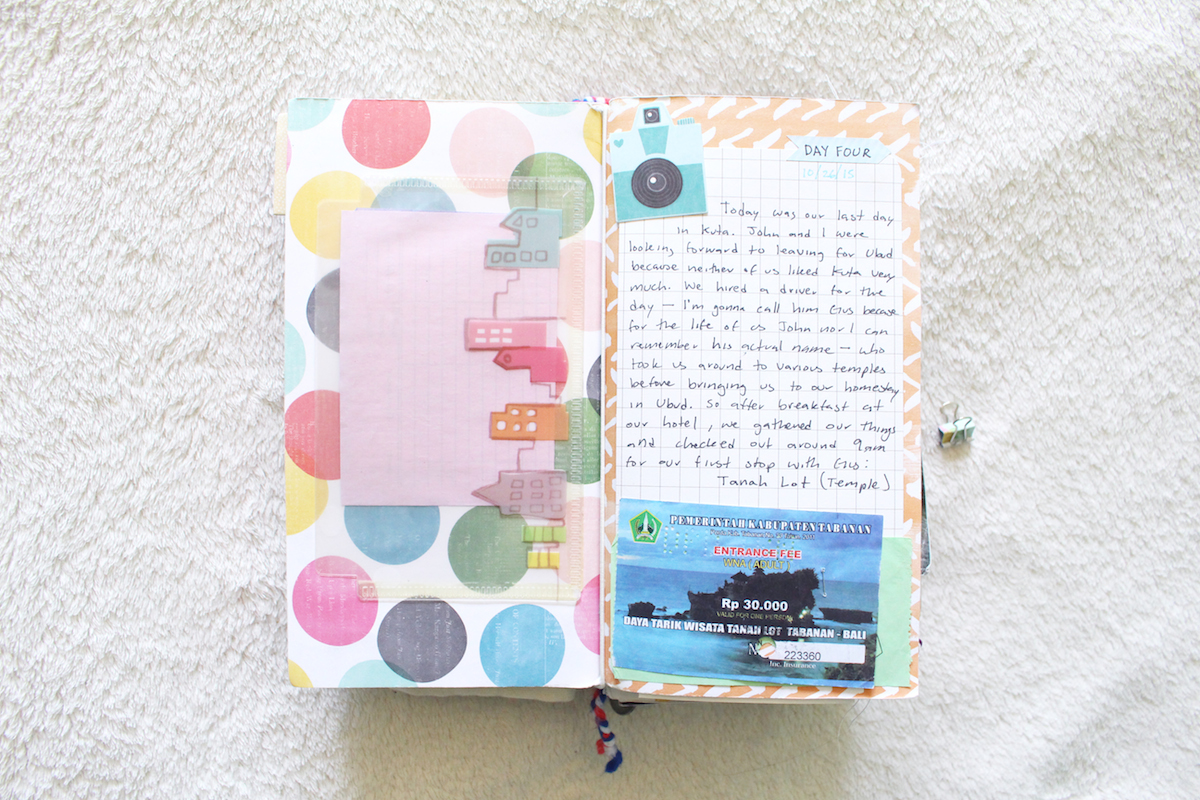 DAY FOUR
10/26/15
Today was our last day
in Kuta. John and I were
looking forward to leaving for Ubud
because neither of us liked Kuta very
much. We hired a driver for the
day — I'm gonna call him Gus because
for the life of us John nor I can
remember his actual name — who
took us around to various temples
before bringing us to our homestay
in Ubud. So after breakfast at
our hotel, we gathered our things
and checked out around 9am
for our first stop with Gus:
Tanah Lot (Temple)
PEMERINTAH KABUPATEN TABANAN
ENTRANCE FEE
WNA (ADULT)
Rp 30.000
VALID FOR ONE PERSON
DAYA TARIK WISATA TANAH LOT TABANAN - BALI
223360
Inc. Insurance